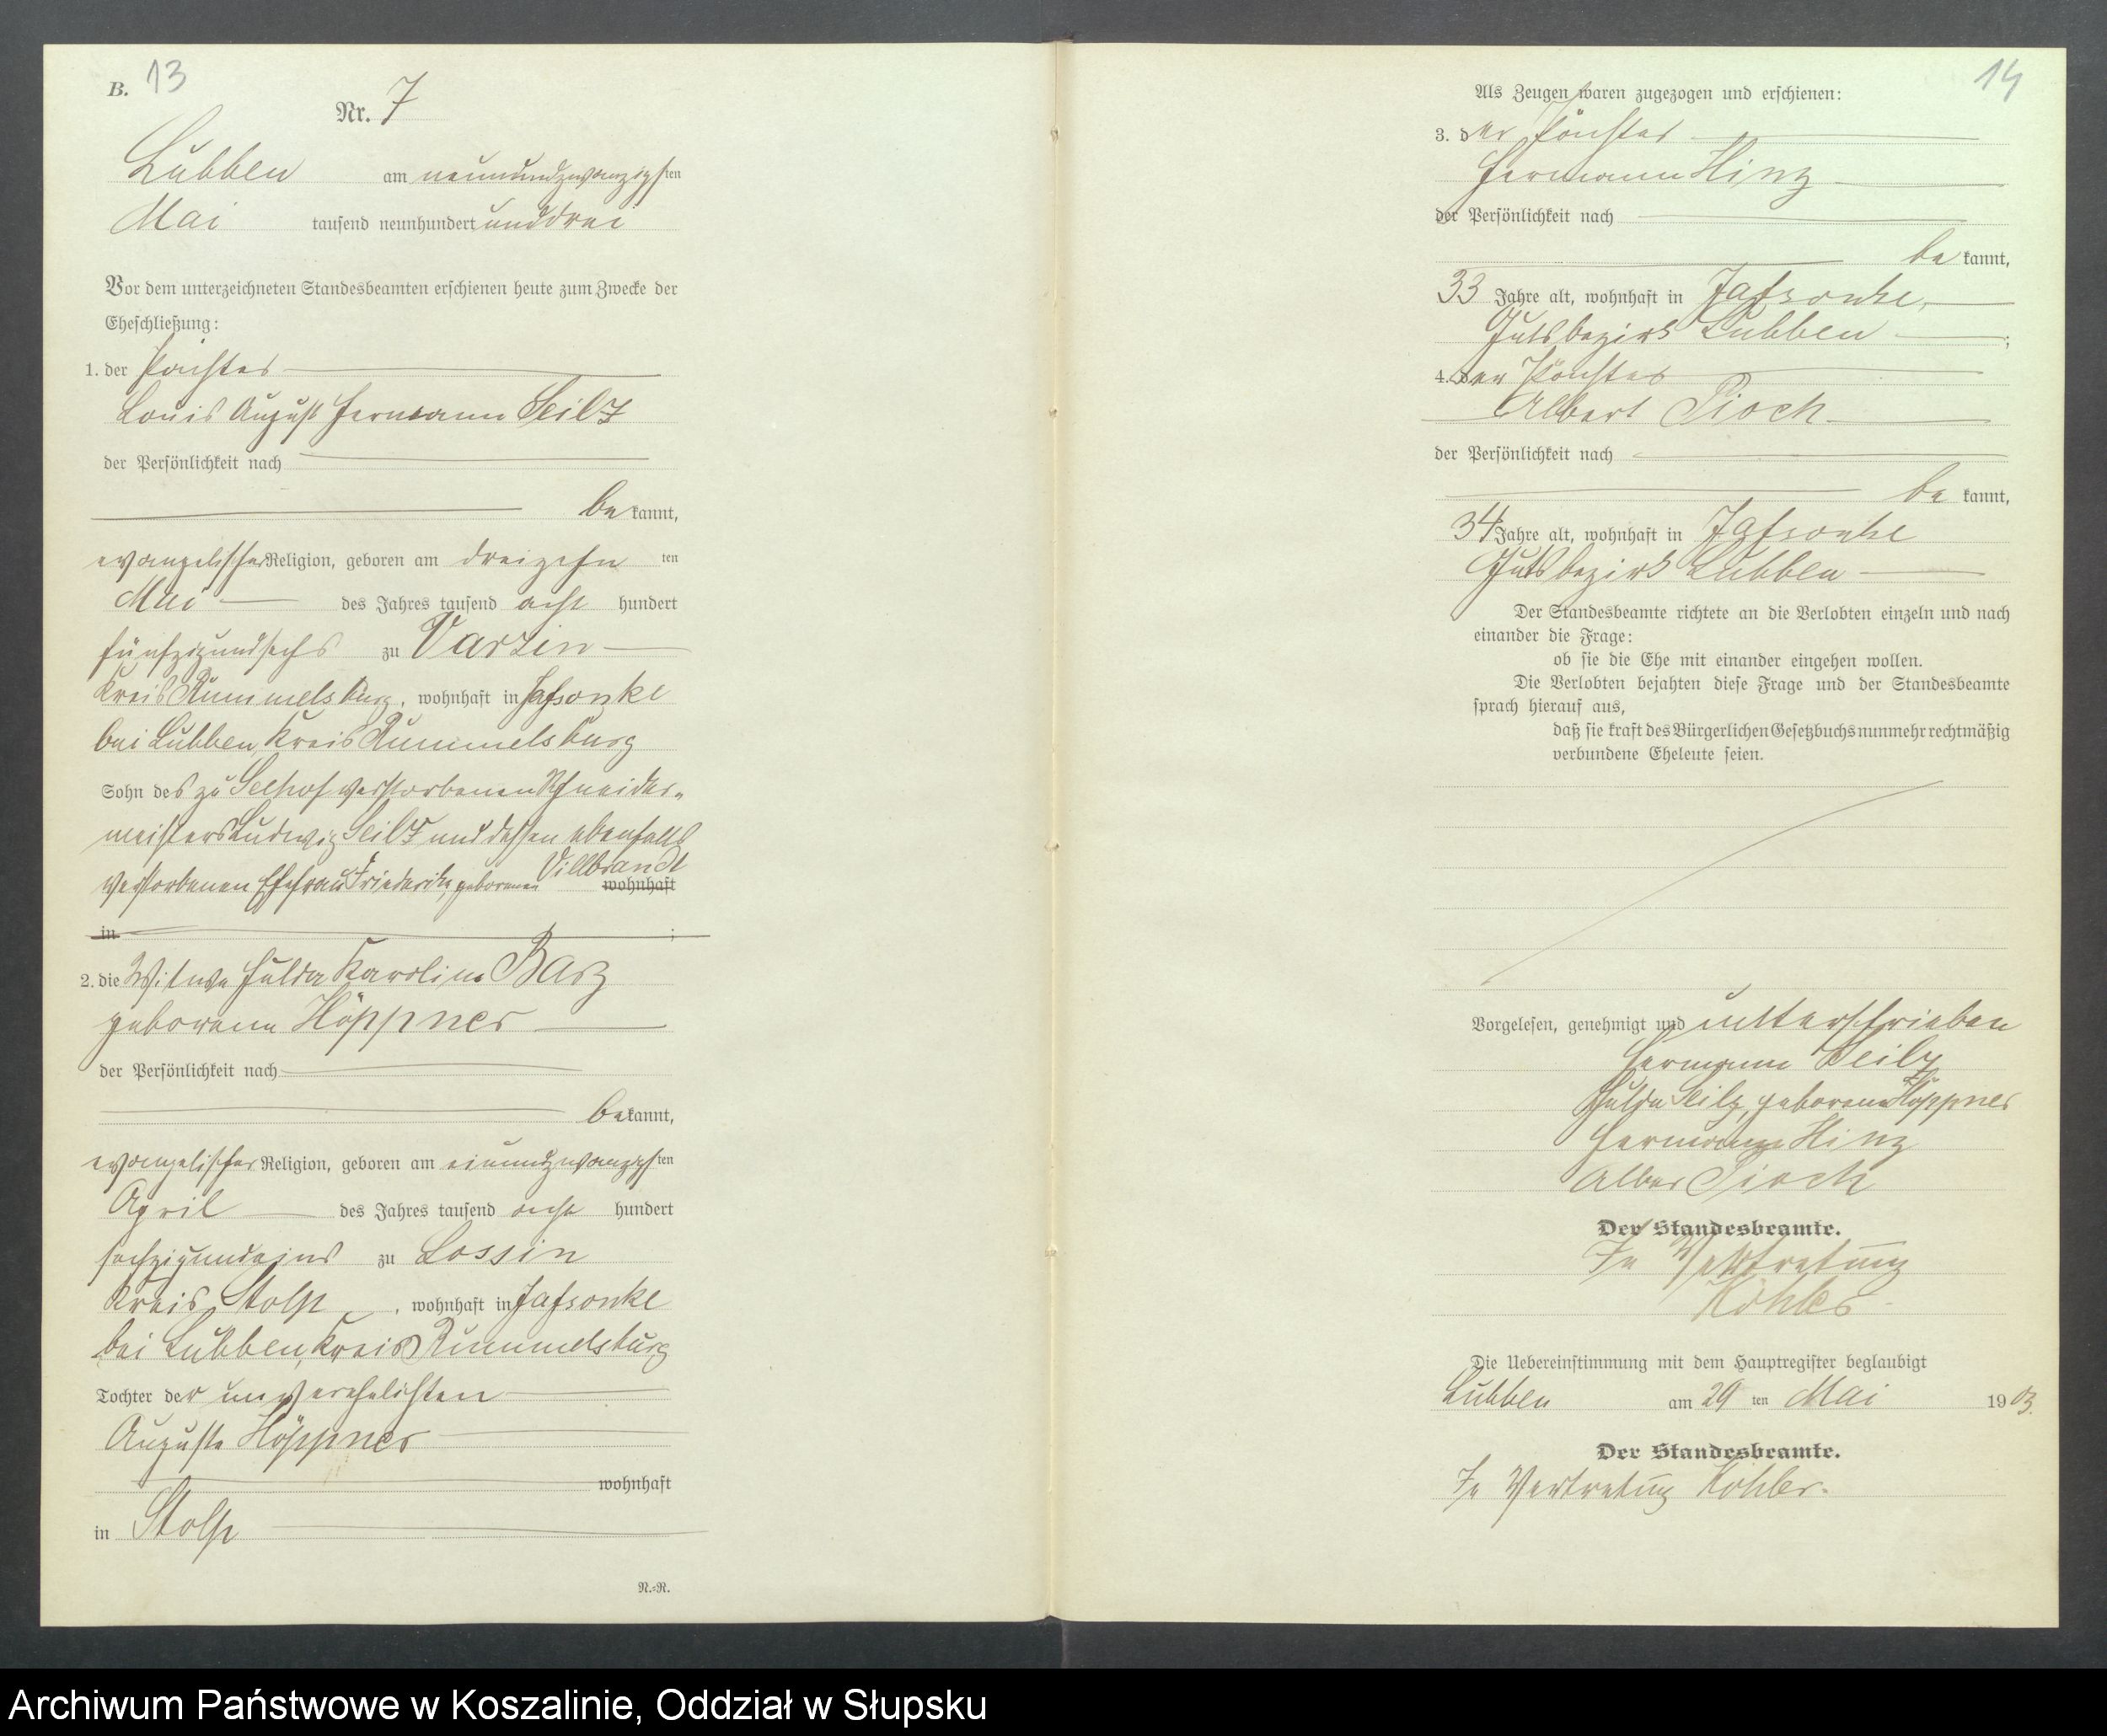 B. 13
Nr. 7
Lubben am neunundzwanzigsten
Mai tausend neunhundert unddrei
Vor dem unterzeichneten Standesbeamten erschienen heute zum Zwecke der
Eheschließung:
1. der Pächter
Louis August Hermann Seils
der Persönlichkeit nach
be kannt,
evangelischer Religion, geboren am dreizehn ten
Mai des Jahres tausend acht hundert
fünfzigundsechs zu Varzin
Kreis Rummelsburg, wohnhaft in Jassonke
bei Lubben, Kreis Rummelsburg
Sohn des zu Seehof verstorbenen Schneider-
meisters Ludwig Seils und dessen ebenfalls
verstorbenen Ehefrau Friederike, geborenen Villbrandt wohnhaft
in ;
2. die Witwe Hulda Karoline Barz
geborene Höppner
der Persönlichkeit nach
be kannt,
evangelischer Religion, geboren am einundzwanzigsten
April des Jahres tausend acht hundert
sechzigundeins zu Lossin
Kreis Stolp, wohnhaft in Jassonke
bei Lubben, Kreis Rummelsburg
Tochter der unverehelichten
Auguste Höppner
wohnhaft
in Stolp
N.-R.
14
Als Zeugen waren zugezogen und erschienen:
3. der Pächter
Hermann Hinz
der Persönlichkeit nach
be kannt,
33 Jahre alt, wohnhaft in Jassonke,
Gutsbezirk Lubben ;
4. der Pächter
Albert Pioch
der Persönlichkeit nach
be kannt,
34 Jahre alt, wohnhaft in Jassonke
Gutsbezirk Lubben
Der Standesbeamte richtete an die Verlobten einzeln und nach
einander die Frage:
ob sie die Ehe mit einander eingehen wollen.
Die Verlobten bejahten diese Frage und der Standesbeamte
sprach hierauf aus,
daß sie kraft des Bürgerlichen Gesetzbuchs nunmehr rechtmäßig
verbundene Eheleute seien.
Vorgelesen, genehmigt und unterschrieben
Hermann Seilz
Hulda Seilz, geborene Höppner
Hermann Hinz
Alber Pioch
Der Standesbeamte.
In Vertretung
Köhler
Die Uebereinstimmung mit dem Hauptregister beglaubigt
Lubben am 29 ten Mai 1903.
Der Standesbeamte.
In Vertretung Köhler.
Archiwum Państwowe w Koszalinie, Oddział w Słupsku